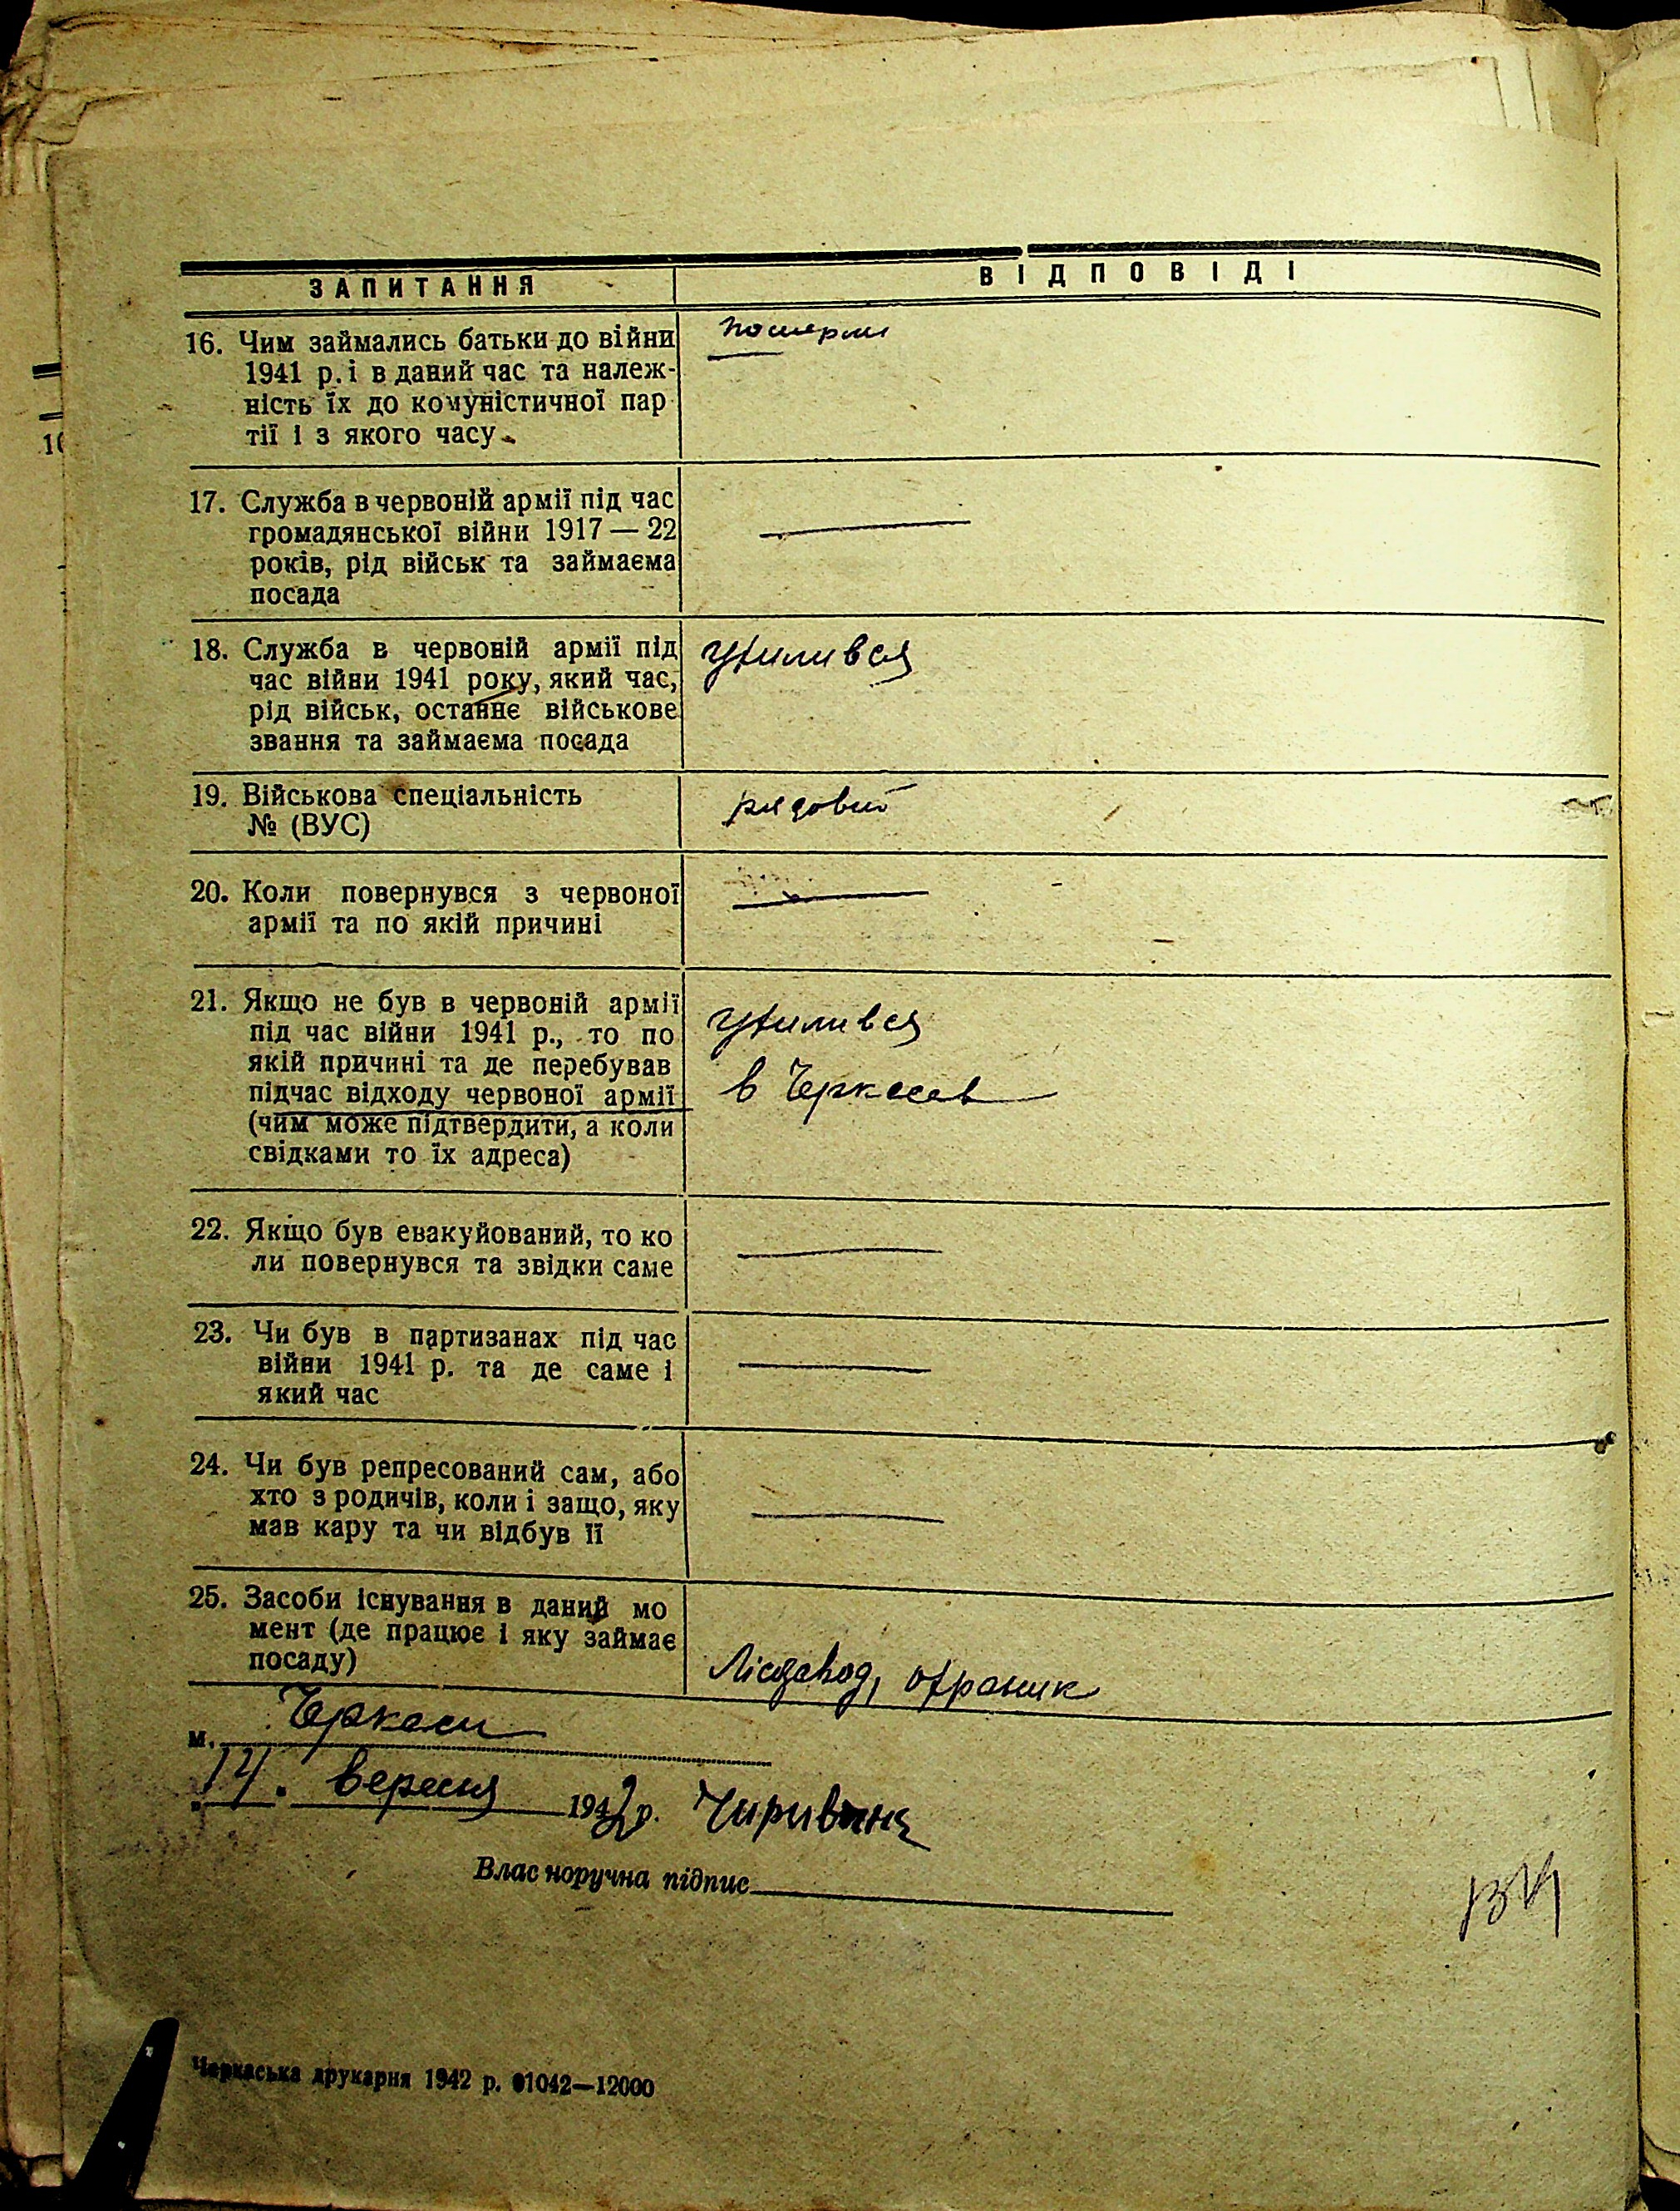 ЗАПИТАННЯ
ВІДПОВІДІ
16. Чим займались батьки до війни
1941 р. і в даний час та належ-
ність їх до комуністичної пар
тії і з якого часу
померли
17. Служба в червоній армії під час
громадянської війни 1917 — 22
років, рід військ та займаєма
посада
18. Служба в червоній армії під
час війни 1941 року, який час,
рід військ, останнє військове
звання та займаєма посада
ухилився
19. Військова спеціальність
№ (ВУС)
рядовий
20. Коли повернувся з червоної
армії та по якій причині
21. Якщо не був в червоній армії
під час війни 1941 р., то по
якій причині та де перебував
підчас відходу червоної армії
(чим може підтвердити, а коли
свідками то їх адреса)
ухилився
в Черкасах
22. Якщо був евакуйований, то ко
ли повернувся та звідки саме
23. Чи був в партизанах під час
війни 1941 р. та де саме і
який час
24. Чи був репресований сам, або
хто з родичів, коли і защо, яку
мав кару та чи відбув її
25. Засоби існування в даний мо
мент (де працює і яку займає
посаду)
Лісзавод, охраник
м. Черкаси
14. вересня 1942 р.
Влас норучна підпис
Черкаська друкарня 1942 р. 01042—12000